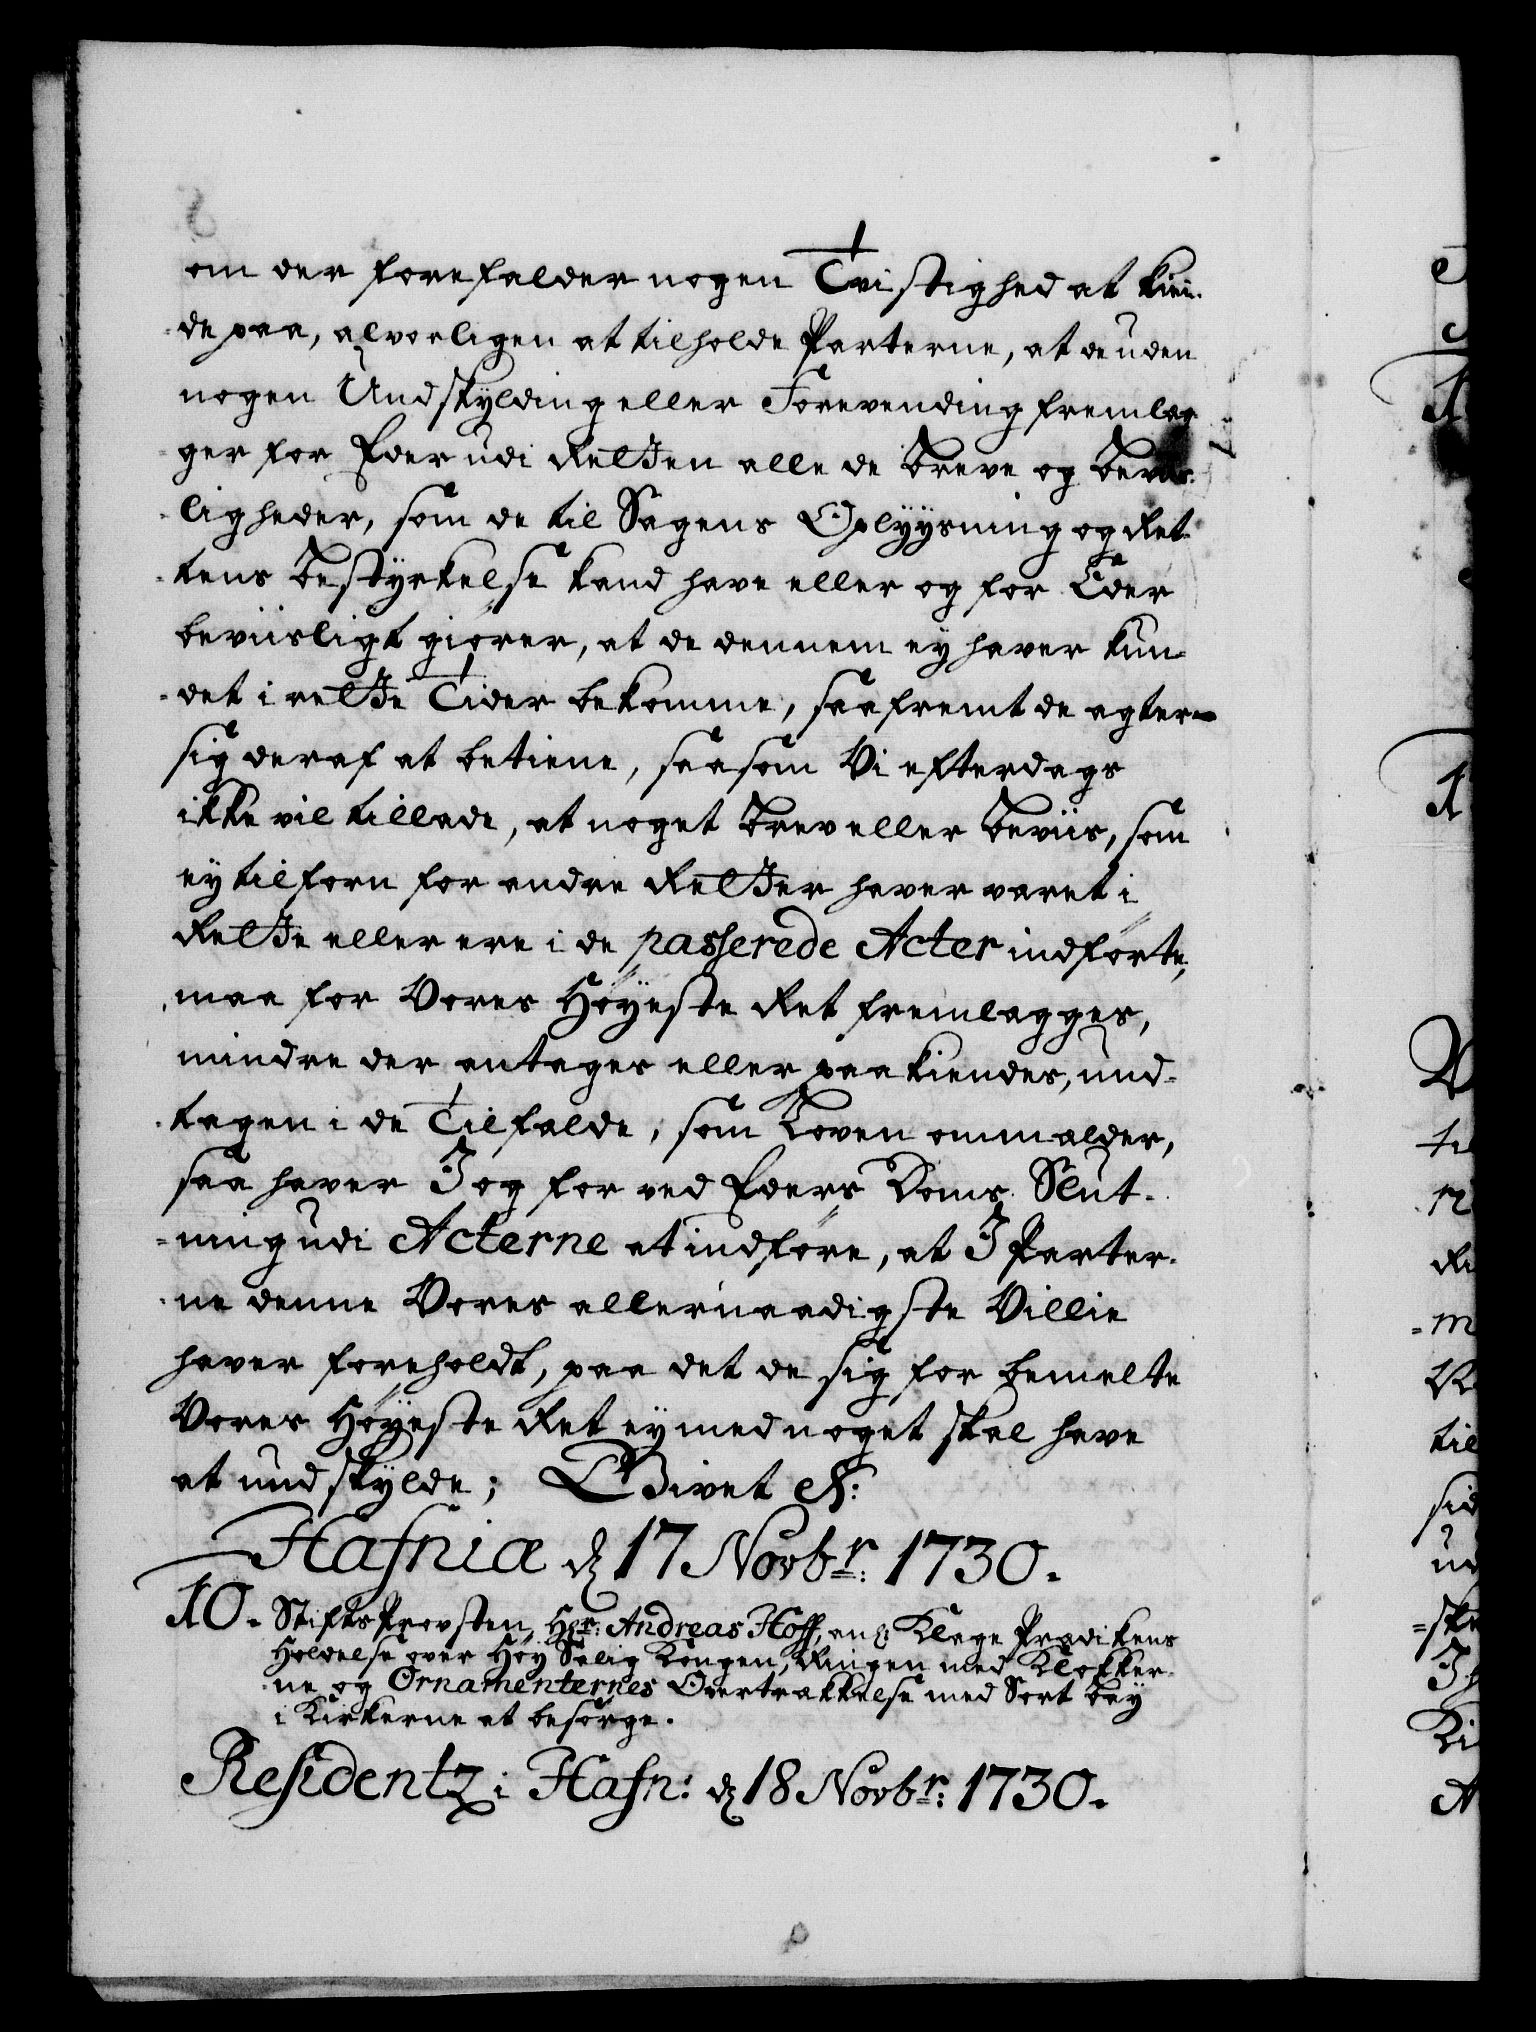 om der forefalder nogen Tvistighed at kien-
de paa, alvorligen at tilholde Parterne, at de uden
nogen Undskylding eller Forevending fremlæg-
ger for Eder udi Retten alle de Breve og Beviis-
ligheder, som de til Sagens Oplyysning og Ret-
tens Bestyrkelse kand have eller og for Eder
beviisligt giører, at de dennem ey haver kun-
det i rette Tider bekomme, saafremt de agter
sig deraf at betiene, saasom Vi efterdags
ikke vil tillade, at noget Brev eller Beviis, som
ey tilforn for andre Retter haver været i
Rette eller ere i de passerede Acter indførte,
maa for Vores Høyeste Ret fremlægges,
mindre der antages eller paakiendes, und-
tagen i de Tilfælde, som Loven ommælder,
saa haver I og for ved Eders Doms Slut-
ning udi Acterne at indføre, at I Parter-
ne denne Vores allernaadigste Villie
haver foreholdt, paa det de sig for bemelte
Vores Høyeste Ret ey med noget skal have
at undskylde; Givet etc:
Hafniæ d 17 Novbr: 1730.
10. Stifts Provsten, Hr: Andreas Hoff, anl: Klage Prædikens
Holdelse over Høy Salig Kongen, Ringen med Klokker-
ne og Ornamenternes Overtrækkelse med Sort Bay
i Kirkerne at besørge.
Residentz i Hafn: d 18 Novbr: 1730.